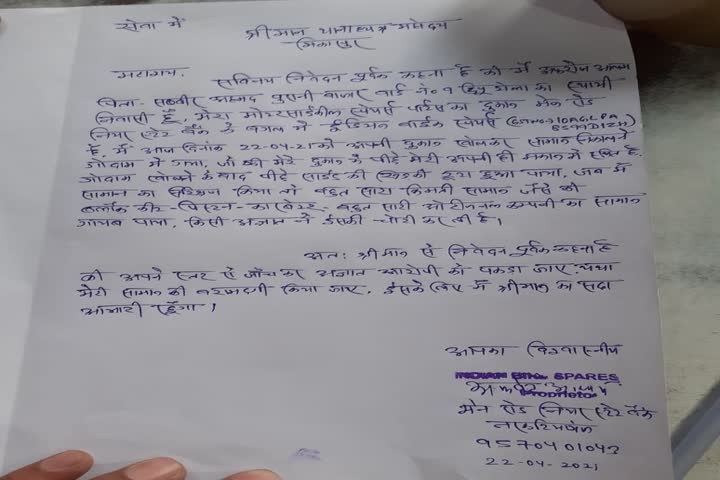 सेवा में
श्रीमान थानाध्यक्ष महोदय
महाशय,
सविनय निवेदन पूर्वक कहना है की मैं
पिता- अहमद पुरानी बाजार वार्ड नं० 9 का स्थायी
निवासी हूँ, मेरा मोटरसाईकील स्पेयर पार्टस का दुकान मेन रोड
नियर स्टेट बैंक के बगल में इंडियन बाईक स्पेयर्स
है, मैं आज दिनांक 22-04-21 को अपनी दुकान खोलकर सामान निकालने
गोदाम में गया, जो की मेरे दुकान के पीछे मेरी अपनी ही मकान में स्थित है.
गोदाम खोलने के बाद पीछे साईड की खिड़की टुटा हुआ पाया, जब मैं
सामान का किया तो बहुत सारा किमती सामान जैसे की
ब्लॉक कीट-पिस्टन-कारबेटर- बहुत सारी ओरीजनल कम्पनी का सामान
गायब पाया, किसी अज्ञात ने ईसकी चोरी कर ली है।
अतः श्रीमान से निवेदन पूर्वक कहना है
की अपने स्तर से जाँच कर अज्ञात आरोपी को पकड़ा जाए, तथा
मेरी सामान की बरामदगी किया जाए, ईसके लिए मैं श्रीमान का सदा
आभारी रहूँगा।
आपका विश्वासनीय
INDIAN BIKE SPARES
Proprietor
मेन रोड नियर स्टेट बैंक
नरकटियागंज
9570401043
22-04-2021